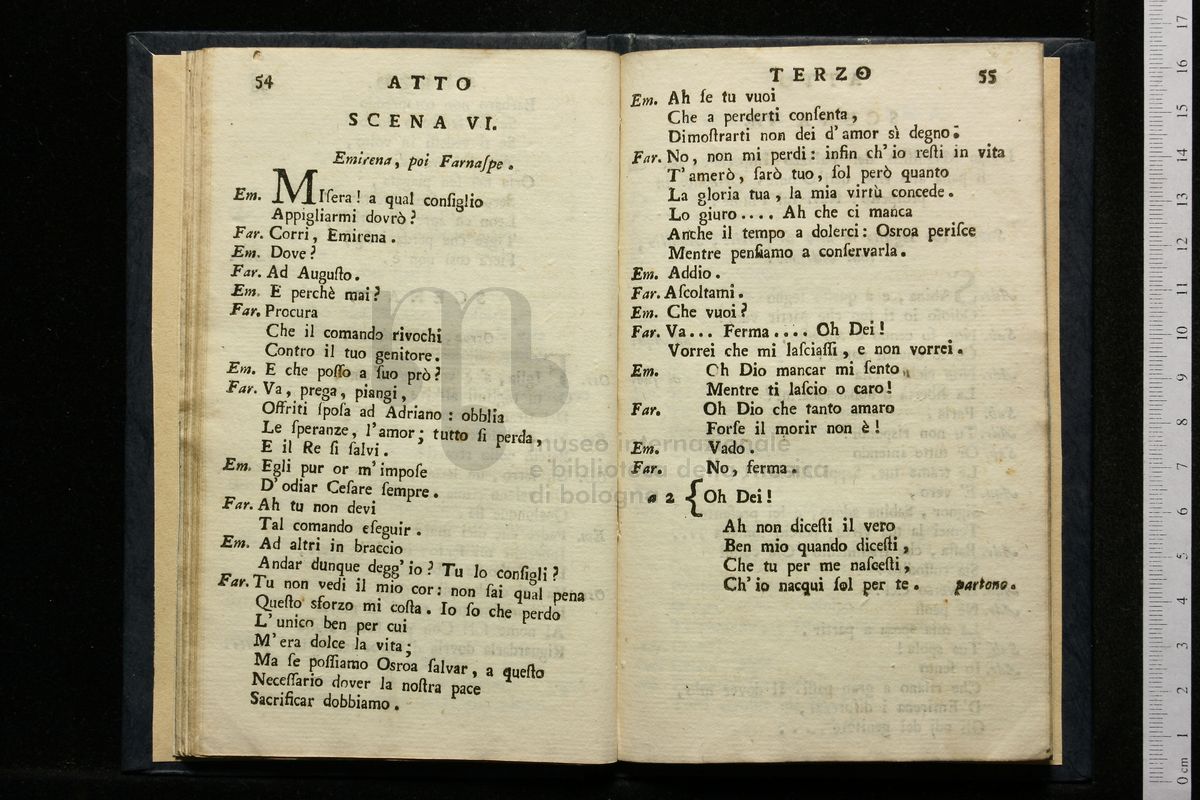 54
ATTO
SCENA VI.
Emirena, poi Farnaſpe.
Em. MIſera! a qual conſiglio
Appigliarmi dovrò?
Far. Corri, Emirena.
Em. Dove?
Far. Ad Auguſto.
Em. E perchè mai?
Far. Procura
Che il comando rivochi
Contro il tuo genitore.
Em. E che poſſo a ſuo prò?
Far. Va, prega, piangi,
Offriti ſpoſa ad Adriano: obblia
Le ſperanze, l'amor; tutto ſi perda,
E il Re ſi ſalvi.
Em. Egli pur or m'impoſe
D'odiar Ceſare ſempre.
Far. Ah tu non devi
Tal comando eſeguir.
Em. Ad altri in braccio
Andar dunque degg'io? Tu lo conſigli?
Far. Tu non vedi il mio cor: non ſai qual pena
Queſto sforzo mi coſta. Io ſo che perdo
L'unico ben per cui
M'era dolce la vita;
Ma ſe poſſiamo Osroa ſalvar, a queſto
Neceſſario dover la noſtra pace
Sacrificar dobbiamo.
TERZO
55
Em. Ah ſe tu vuoi
Che a perderti conſenta,
Dimoſtrarti non dei d'amor sì degno.
Far. No, non mi perdi: infin ch'io reſti in vita
T'amerò, ſarò tuo, ſol però quanto
La gloria tua, la mia virtù concede.
Lo giuro.... Ah che ci manca
Anche il tempo a dolerci: Osroa periſce
Mentre penſiamo a conſervarla.
Em. Addio.
Far. Aſcoltami.
Em. Che vuoi?
Far. Va... Ferma.... Oh Dei!
Vorrei che mi laſciaſſi, e non vorrei.
Em. Oh Dio mancar mi ſento,
Mentre ti laſcio o caro!
Far. Oh Dio che tanto amaro
Forſe il morir non è!
Em. Vado.
Far. No, ferma.
a 2 { Oh Dei!
Ah non diceſti il vero
Ben mio quando diceſti,
Che tu per me naſceſti,
Ch'io nacqui ſol per te. partono.
museo internazionale
e biblioteca della musica
di bologna
0 cm 1 2 3 4 5 6 7 8 9 10 11 12 13 14 15 16 17